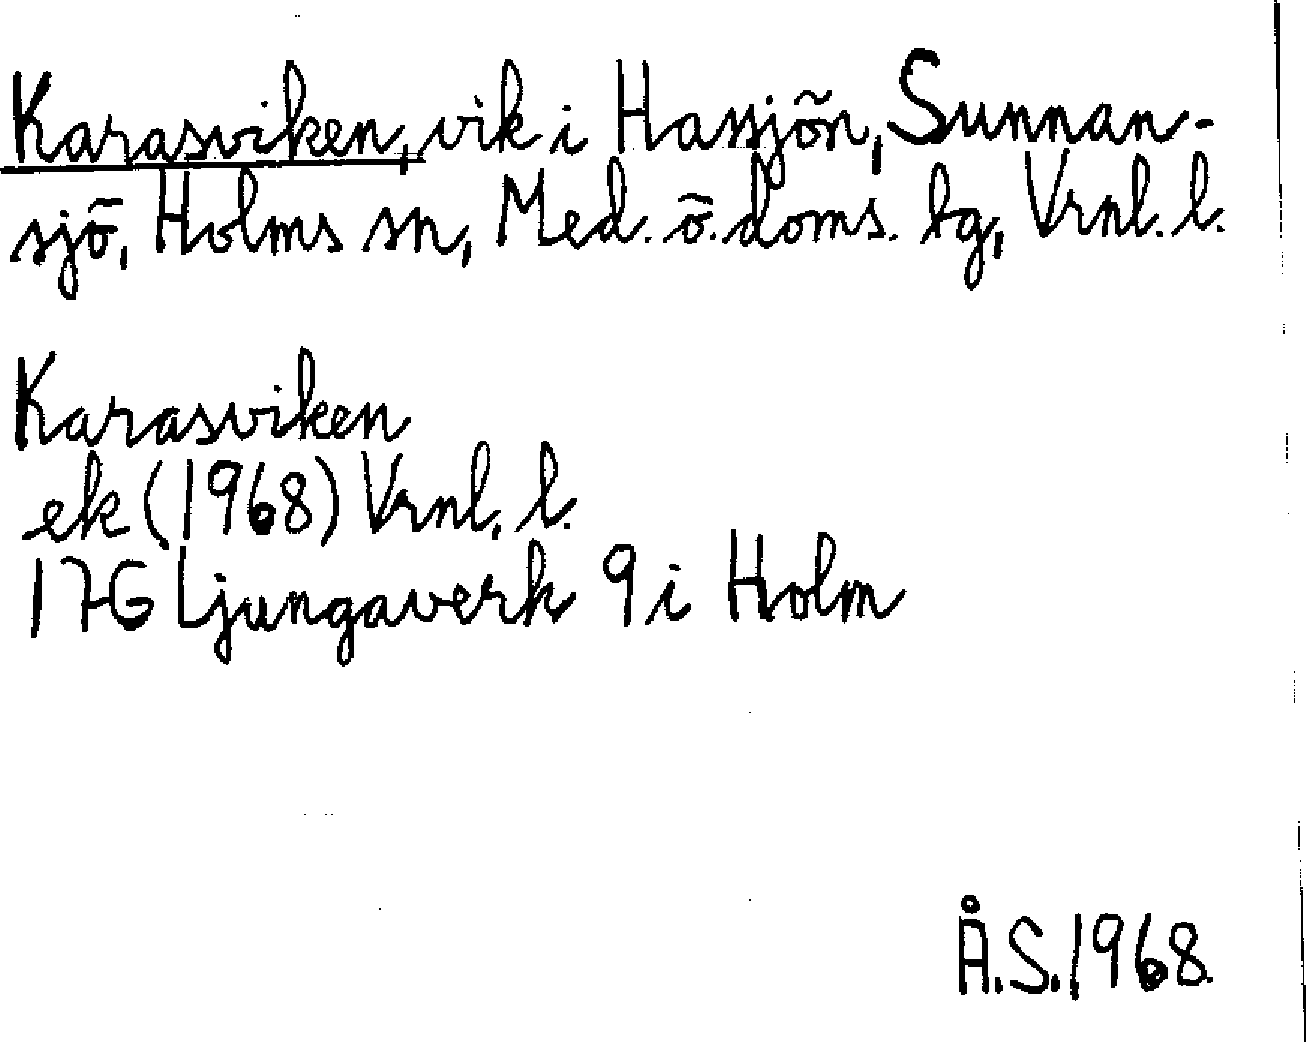 Karasviken, vik i Hassjön, Sunnan-
sjö, Holms sn, Med. ö. doms. lg, Vrnl. l.
Karasviken
ek (1968) Vrnl. l.
17G Ljungaverk 9 i Holm
Å.S. 1968.